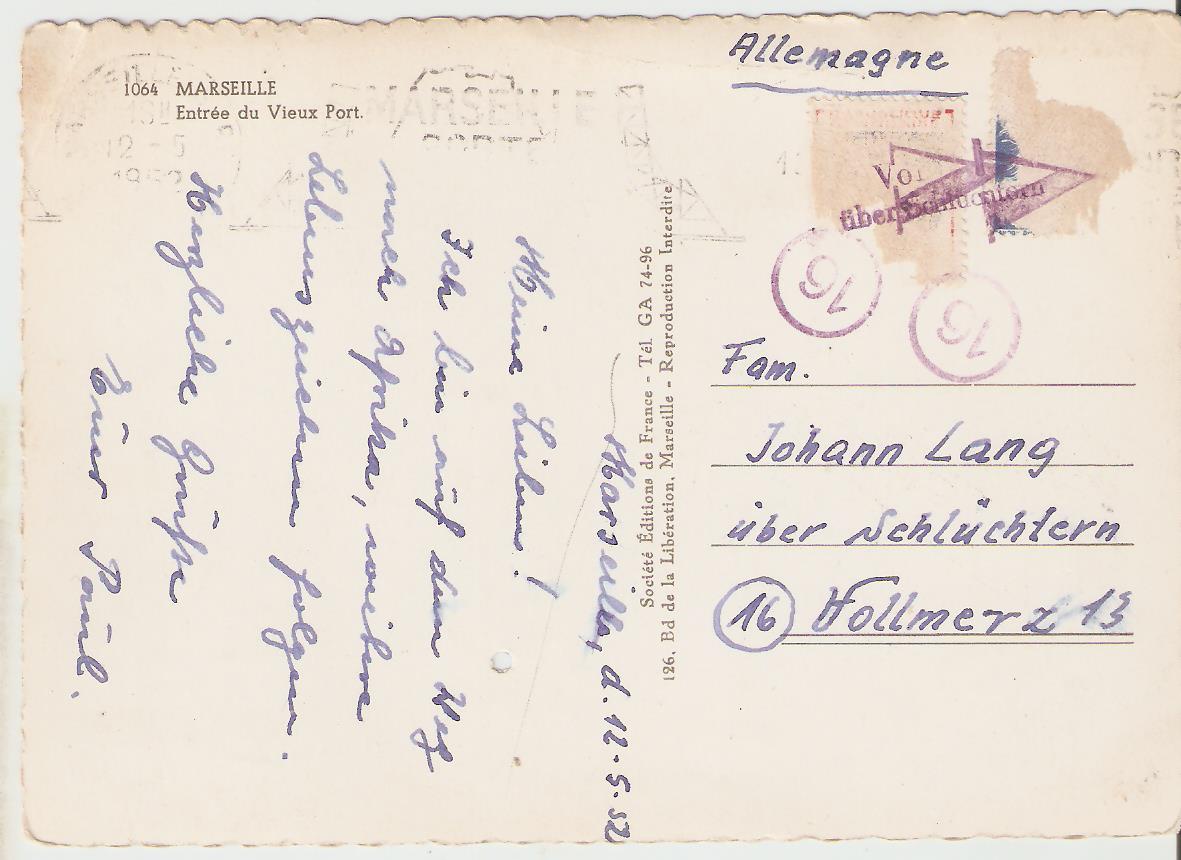 1064 MARSEILLE
Entrée du Vieux Port.
MARSEILLE
12 - 5
Allemagne
über Schlüchtern
16
16
Fam.
Johann Lang
über Schlüchtern
16 Vollmerz 13
Société Éditions de France - Tél. GA 74-96
126, Bd de la Libération, Marseille - Reproduction Interdite
Marseille, d. 12.5.52
Meine Lieben!
Ich bin auf dem Weg
nach Afrika, weitere
Lebenszeichen folgen.
Herzliche Grüße
Euer Paul.